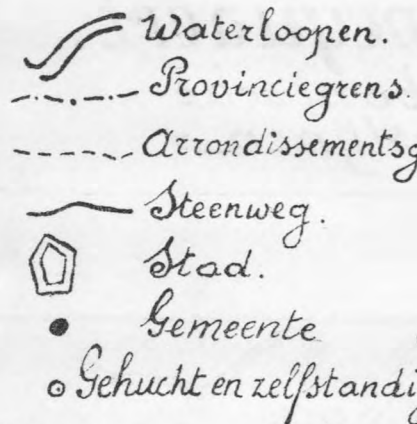 Waterloopen.
Provinciegrens.
Arrondissementsg
Steenweg.
Stad.
Gemeente
Gehucht en zelfstandig